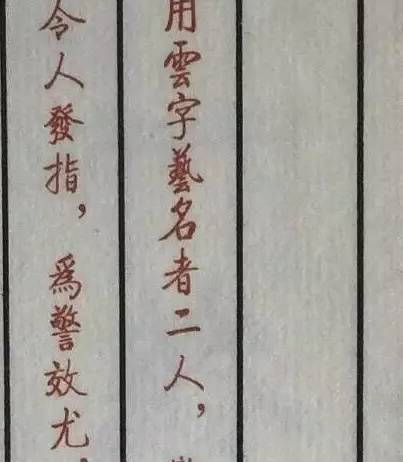 用雲字藝名者二人，
令人發指，為警效尤，